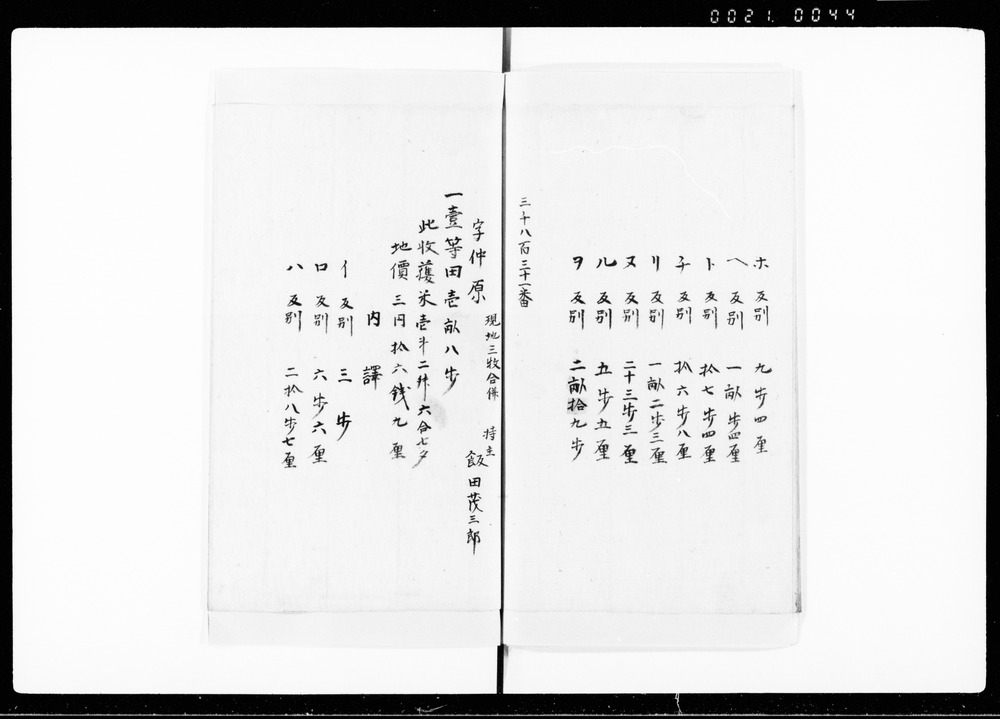 0021. 0044
ホ 反別 九歩四厘
ヘ 反別 一畝歩四厘
ト 反別 拾七歩四厘
チ 反別 拾六歩八厘
リ 反別 一畝二歩三厘
ヌ 反別 二十三歩三厘
ル 反別 五歩五厘
ヲ 反別 二畝拾九歩
三十八百三十一番
現地三牧合併
持主
字仲原 飯田茂三郎
一壹等田壱畝八歩
此收獲米壱斗二升六合七夕
地價三円拾六銭九厘
内譯
イ 反別 三歩
ロ 反別 六歩六厘
ハ 反別 二拾八歩七厘